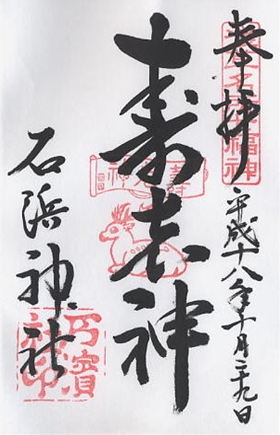 奉拝
平成十八年十月二十九日
寿老神
石浜神社
壽老神
石濱神社印